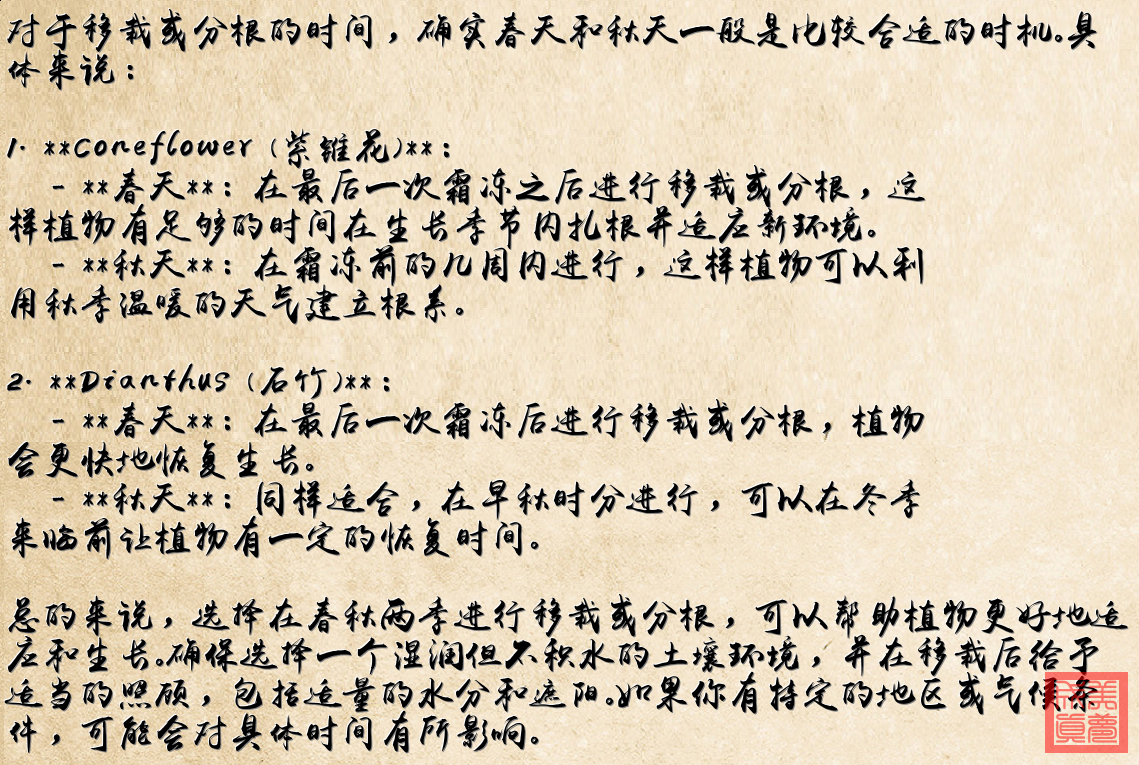 对于移栽或分根的时间，确实春天和秋天一般是比较合适的时机。具
体来说：
1. **Coneflower (紫锥花)**：
- **春天**：在最后一次霜冻之后进行移栽或分根，这
样植物有足够的时间在生长季节内扎根并适应新环境。
- **秋天**：在霜冻前的几周内进行，这样植物可以利
用秋季温暖的天气建立根系。
2. **Dianthus (石竹)**：
- **春天**：在最后一次霜冻后进行移栽或分根，植物
会更快地恢复生长。
- **秋天**：同样适合，在早秋时分进行，可以在冬季
来临前让植物有一定的恢复时间。
总的来说，选择在春秋两季进行移栽或分根，可以帮助植物更好地适
应和生长。确保选择一个湿润但不积水的土壤环境，并在移栽后给予
适当的照顾，包括适量的水分和遮阳。如果你有特定的地区或气候条
件，可能会对具体时间有所影响。